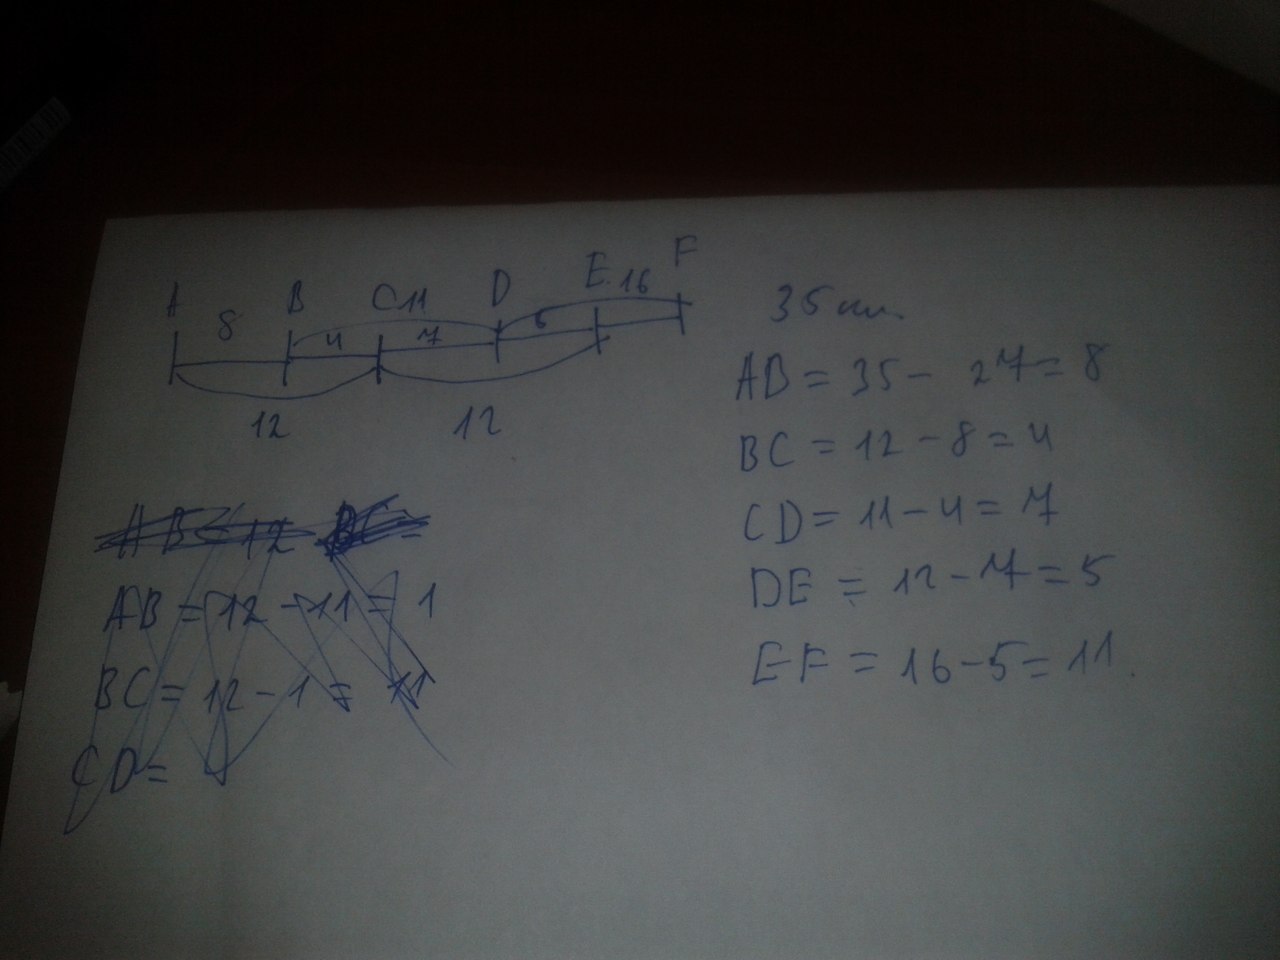 A B C 11 D E 16 F
8 4 7 5
12 12
AB = 12 BC =
AB = 12 - 11 = 1
BC = 12 - 1 = 11
CD =
35 см.
AB = 35 - 27 = 8
BC = 12 - 8 = 4
CD = 11 - 4 = 7
DE = 12 - 7 = 5
EF = 16 - 5 = 11.